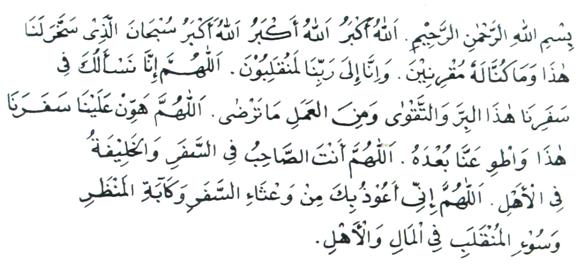 بِسْمِ اللهِ الرَّحْمٰنِ الرَّحِيْمِ. اَللهُ اَكْبَرُ اَللهُ أَكْبَرُ اَللهُ أَكْبَرُ سُبْحَانَ الَّذِىْ سَخَّرَلَنَا
هٰذَا وَمَاكُنَّالَهُ مُقْرِنِيْنَ. وَاِنَّا إِلَى رَبِّنَا لَمُنْقَلِبُوْنَ. اَللّٰهُمَّ إِنَّا نَسْأَلُكَ فِى
سَفَرِنَا هٰذَا الْبِرَّ وَالتَّقْوٰى وَمِنَ الْعَمَلِ مَاتَرْضٰى. اَللّٰهُمَّ هَوِّنْ عَلَيْنَا سَفَرَنَا
هٰذَا وَاطْوِ عَنَّا بُعْدَهُ. اَللّٰهُمَّ أَنْتَ الصَّاحِبُ فِى السَّفَرِ وَالْخَلِيْفَةُ
فِى الْأَهْلِ. اَللّٰهُمَّ إِنِّى أَعُوْذُ بِكَ مِنْ وَعْثَاءِ السَّفَرِ وَكَآبَةِ الْمَنْظَرِ
وَسُوْءِ الْمُنْقَلَبِ فِى الْمَالِ وَالْأَهْلِ.